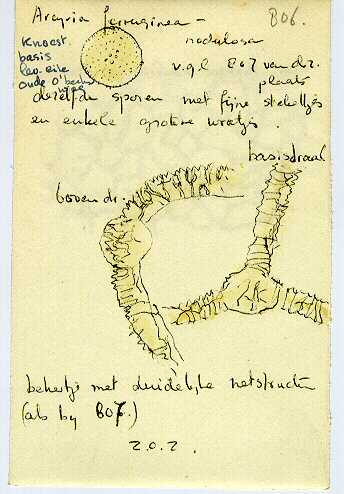 Arcyria ferruginea - 806.
nodulosa
Knoest
basis
v.g.l 807 van dez.
plaats
oude
dezelfde sporen met fijne stekeltjes
en enkele grotere wratjes.
basisdraad
bovendr.
bekertje met duidelijke netstructuur
(als by 807.)
z.o.z.